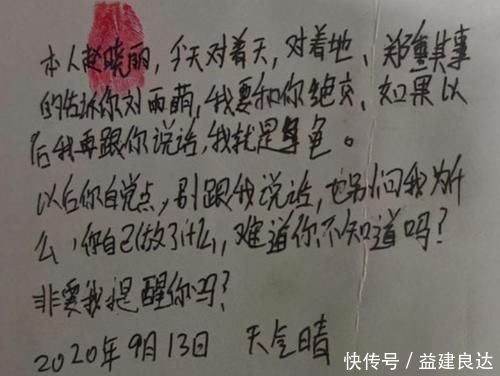 本人赵晓丽，今天对着天，对着地、郑重其事
的告诉你刘雨萌，我要和你绝交、如果以
后我再跟你说话，我就是角色。
以后你自觉点，别跟我说话，也别问我为什
么，你自己做了什么，难道你不知道吗？
非要我提醒你吗？
2020年9月13日 天气晴
快传号／益建良达